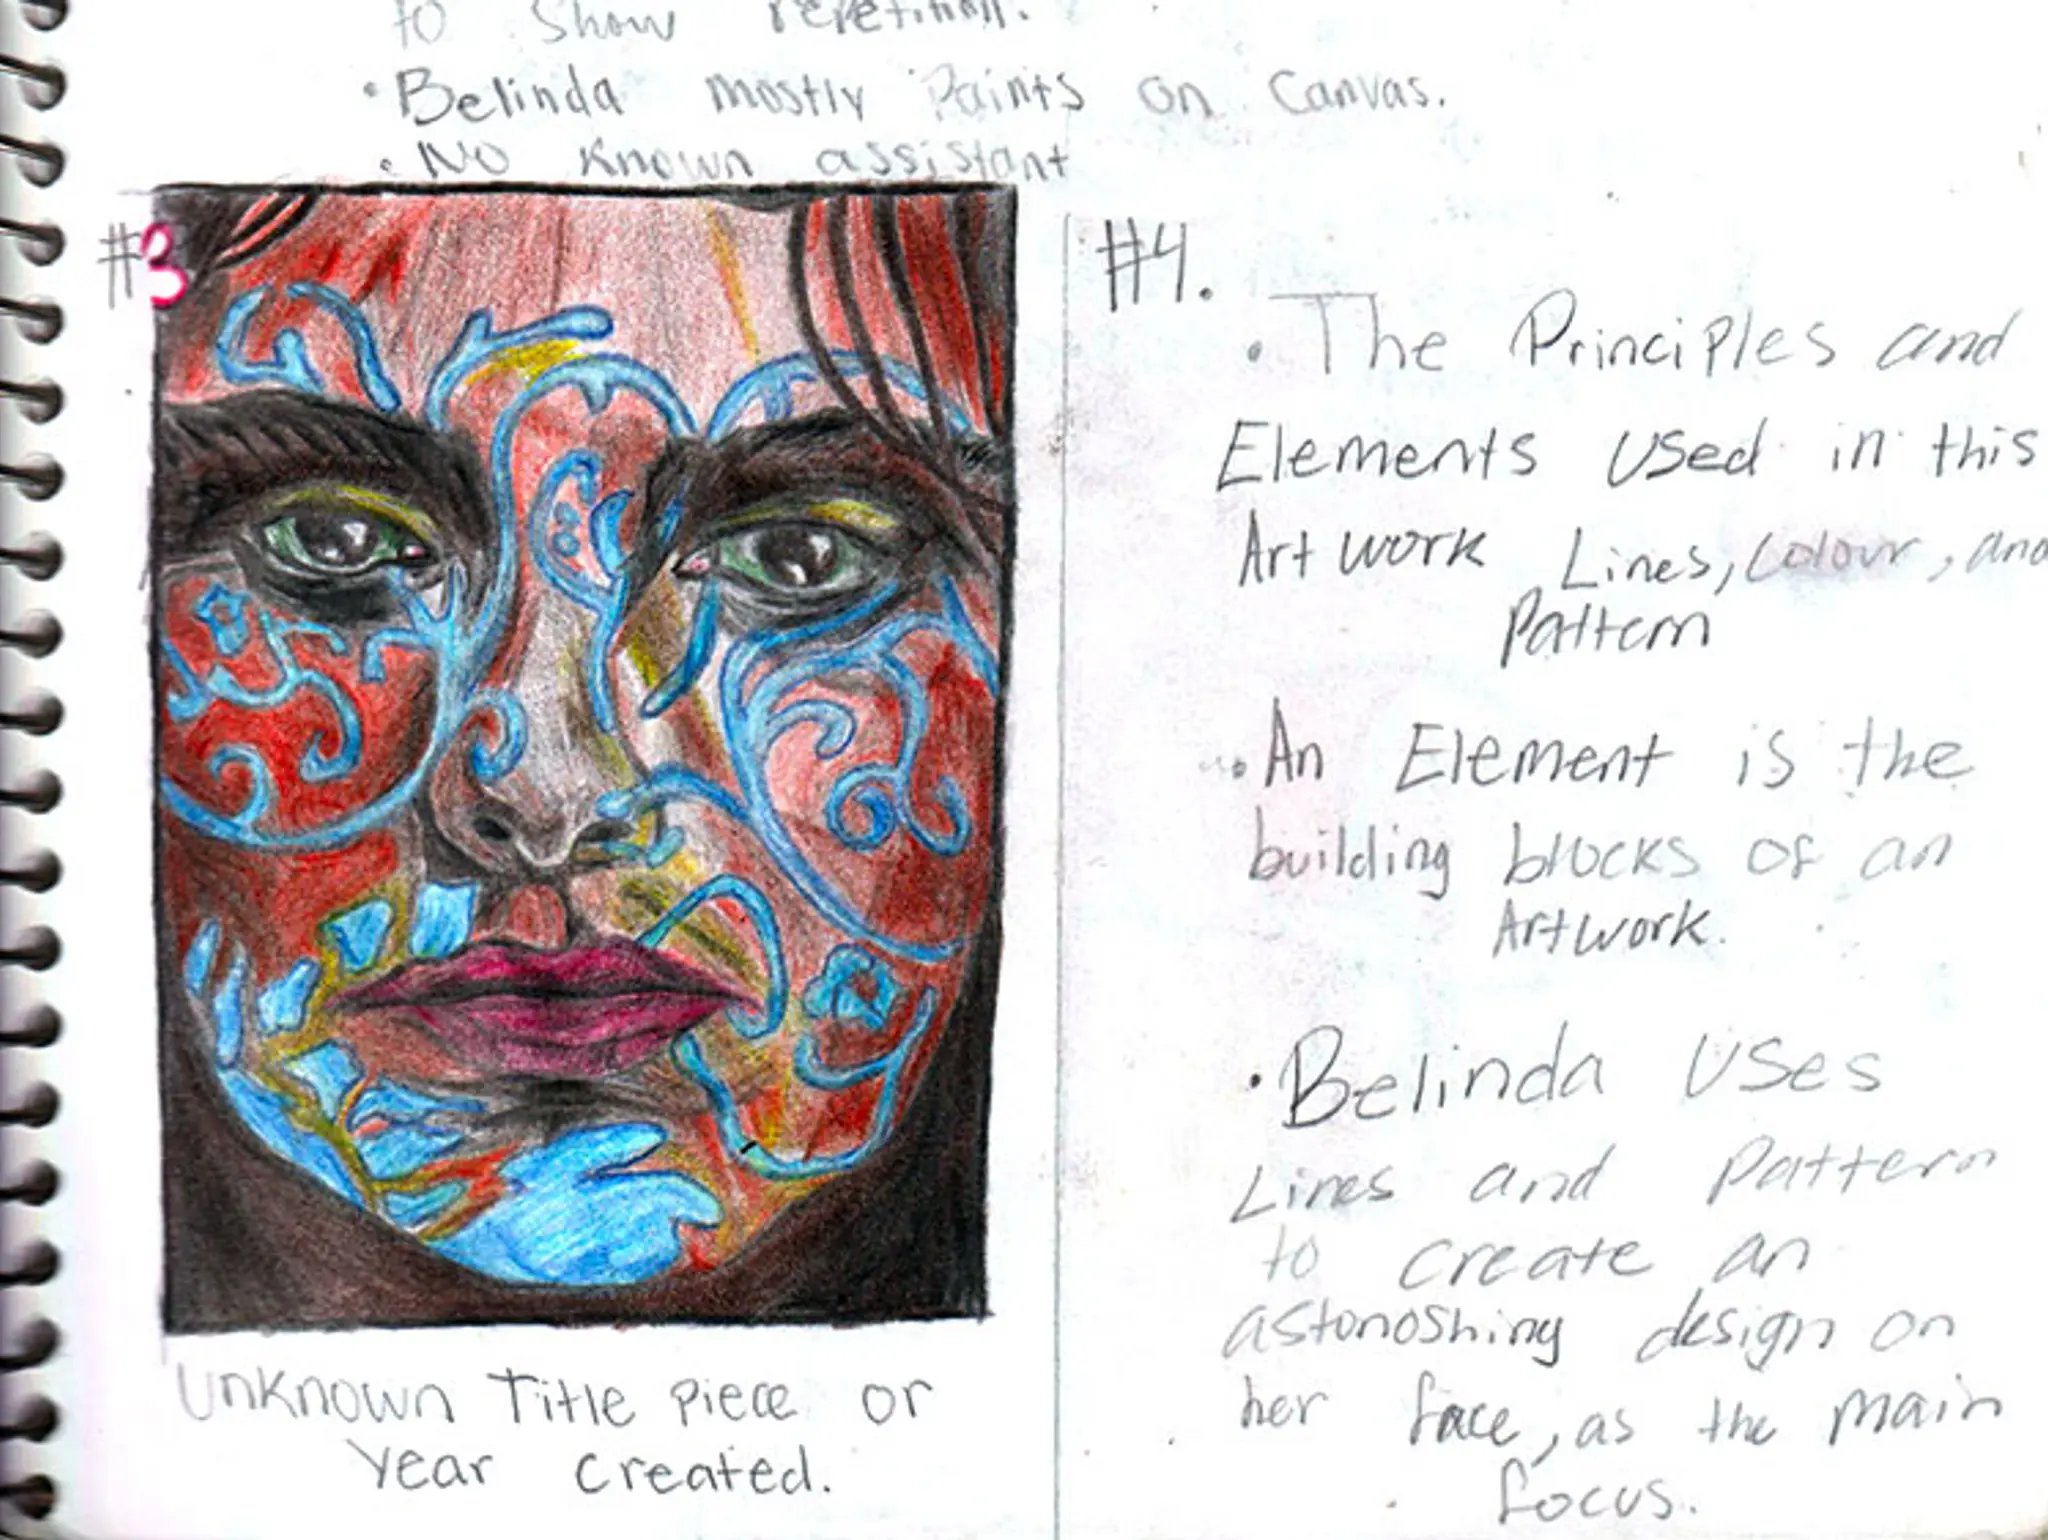 to show repetition.
• Belinda mostly Paints on Canvas.
• No known assistant
#3
Unknown Title piece or
Year created.
#4.
• The Principles and
Elements used in this
Artwork Lines, Colour, and
Pattern
• An Element is the
building blocks of an
Artwork.
• Belinda uses
Lines and Pattern
to create an
astonoshing design on
her face, as the main
focus.